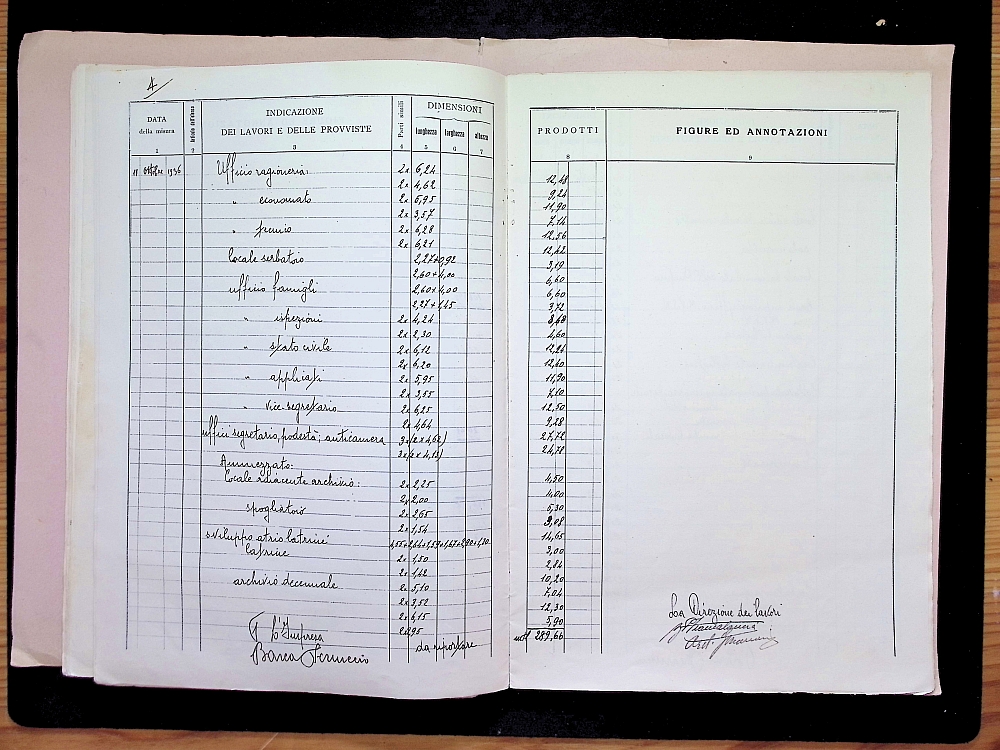 4
DATA della misura
Articolo dell'elenco
INDICAZIONE DEI LAVORI E DELLE PROVVISTE
Parti simili
DIMENSIONI
lunghezza larghezza altezza
PRODOTTI
FIGURE ED ANNOTAZIONI
1 2 3 4 5 6 7 8 9
11 Ottobre 1936 Ufficio ragioneria: 2x 6,24 12,48
2x 4,62 9,24
" economato 2x 5,95 11,90
2x 3,57 7,14
" 2x 6,28 12.56
2x 6,21 12,42
Locale serbatoio 2,27+0,92 3,19
2,60+4,00 6,60
ufficio famigli 2,60+4,00 6,60
2,27+1,45 3,72
" ispezioni 2x 4,24 8,48
2x 2,30 4,60
" stato civile 2x 6,12 12,24
2x 6,20 12,40
" applicati 2x 5,95 11,90
2x 3,55 7,10
" vice-segretario 2x 6,25 12,50
2x 4,64 9,28
uffici segretario, podestà, anticamera 3x(2x4,62) 27,72
3x(2x4,13) 24,78
Ammezzato:
Locale adiacente archivio: 2x 2,25 4,50
2x 2,00 4,00
spogliatoio 2x 2,65 5,30
2x 1,54 3,08
sviluppo atrio latrine 14,65
latrine 2x 1,50 3,00
2x 1,42 2,84
archivio decennale 2x 5,10 10,20
2x 3,52 7,04
2x 6,15 12,30
2x2,95 5,90
da riportare 289,66
L'Impresa
Barca Ferruccio
La Direzione dei lavori